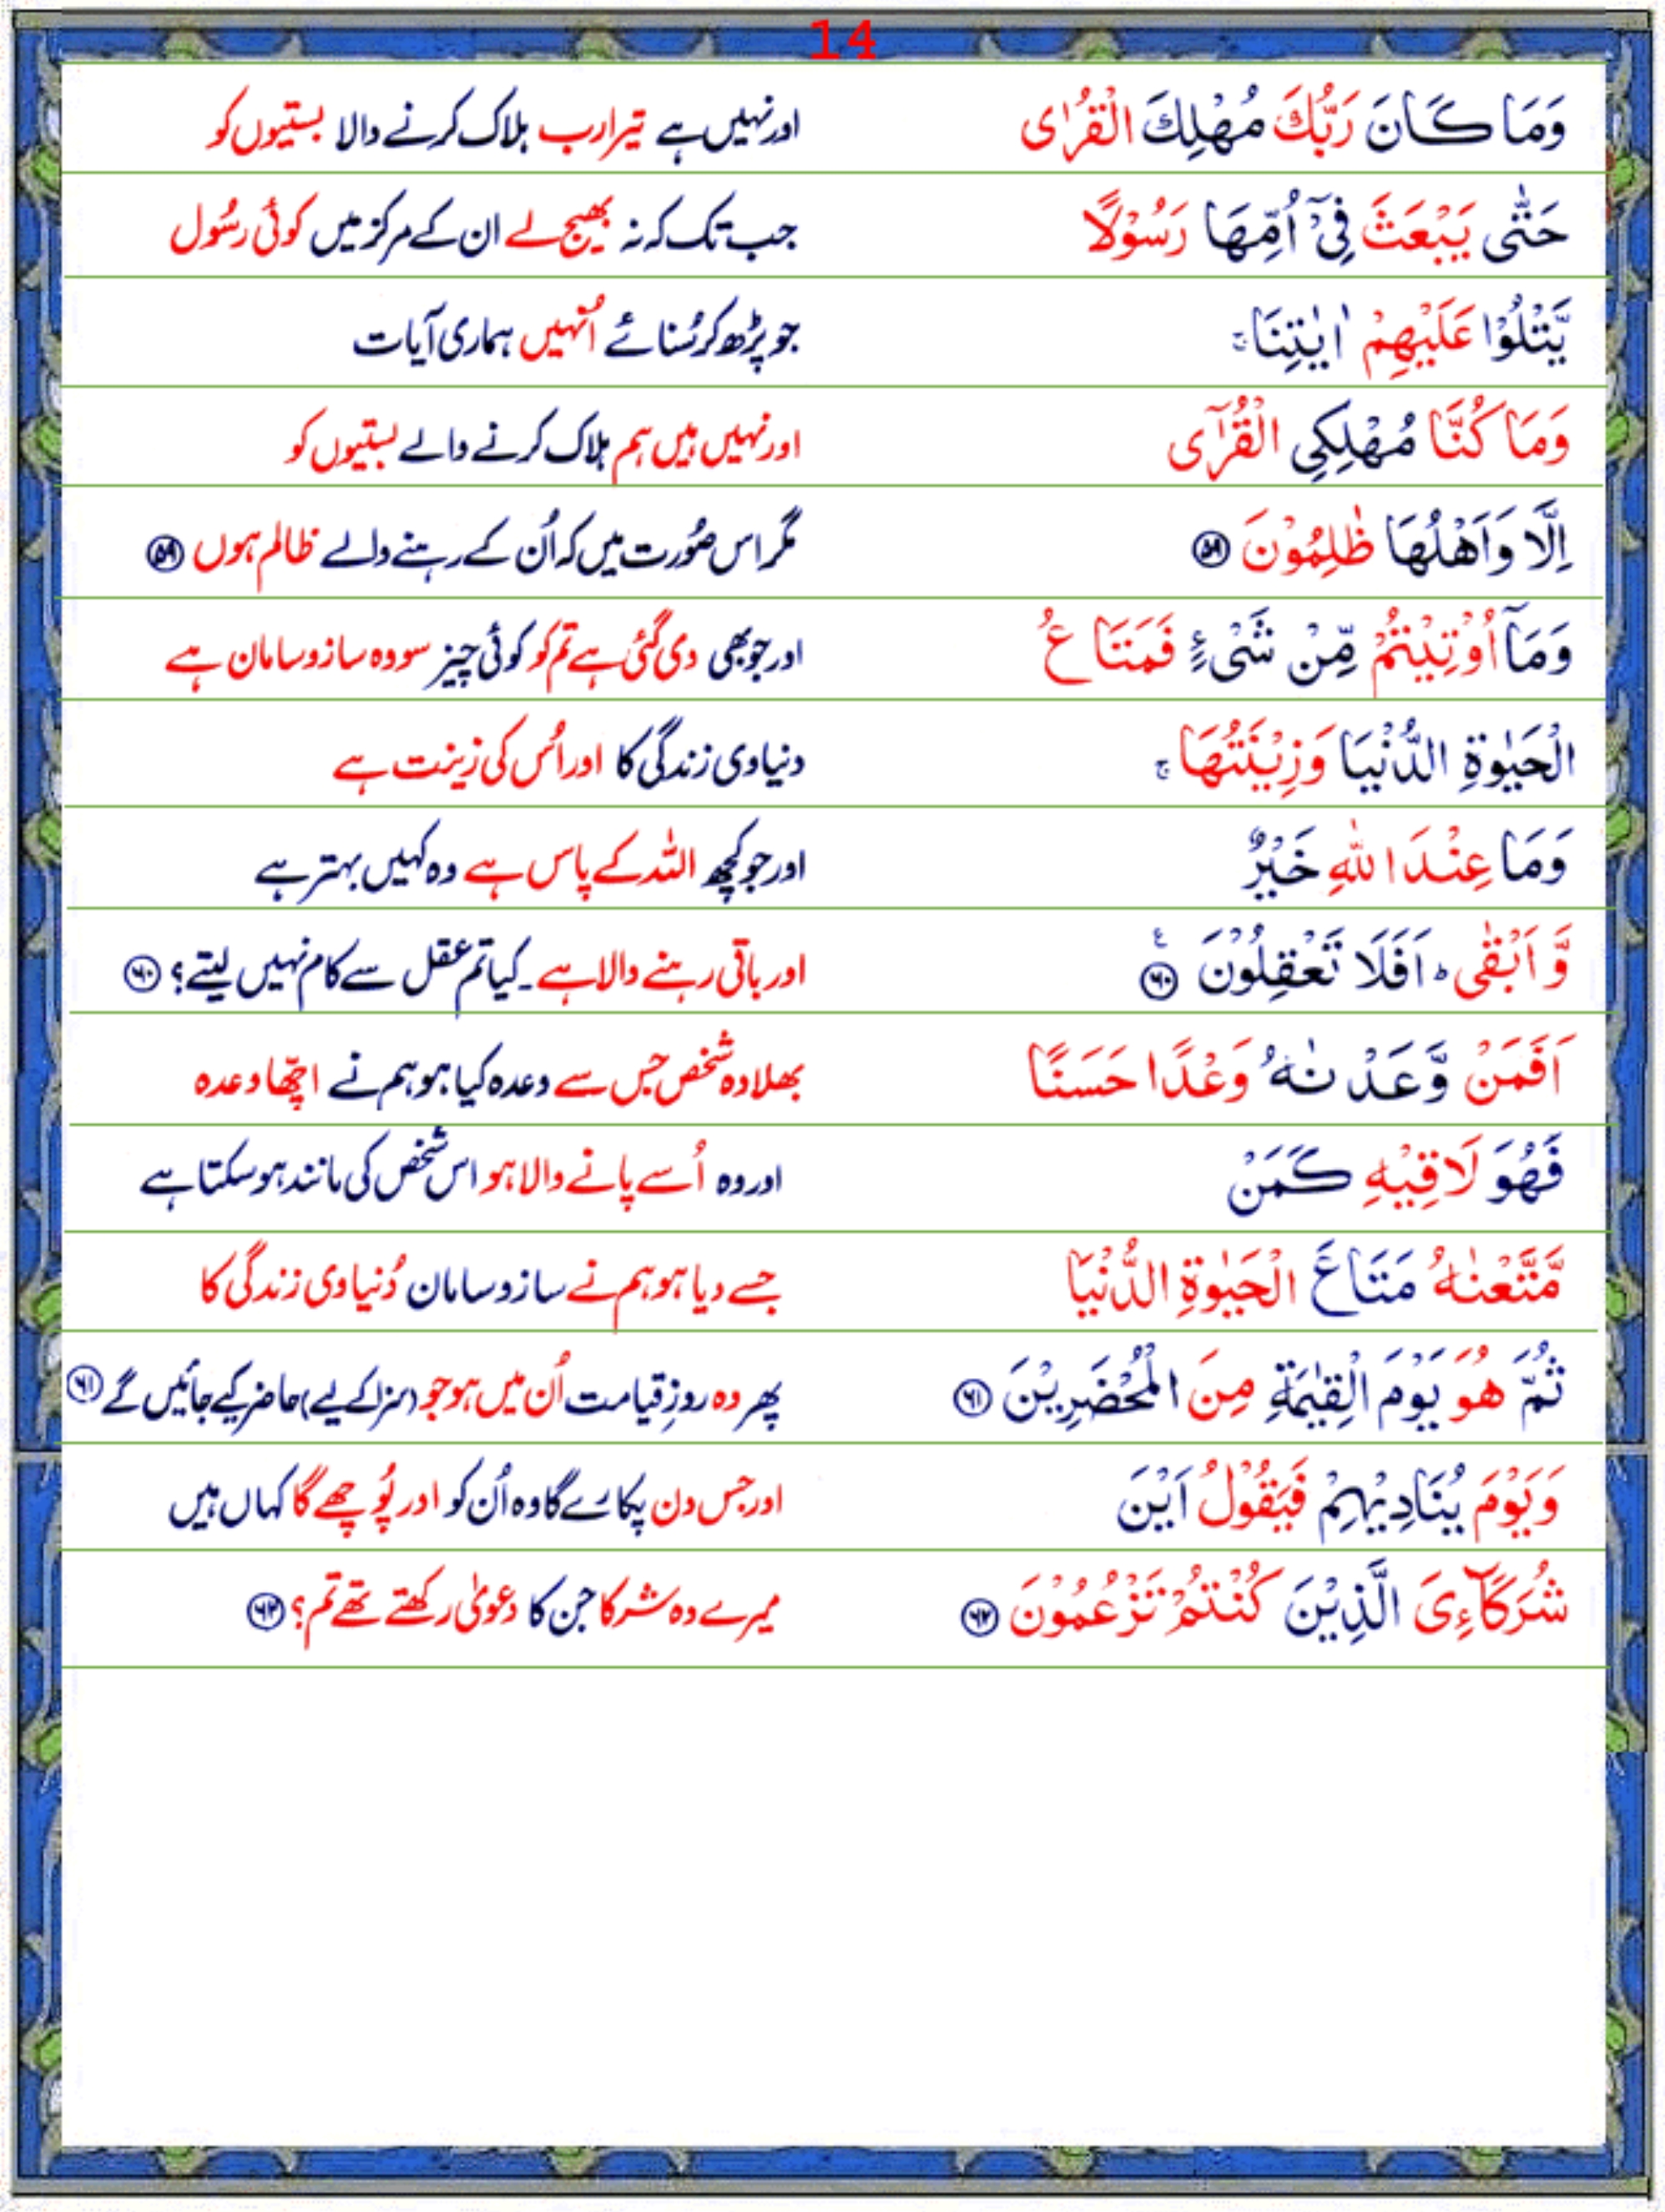 14
وَمَا كَانَ رَبُّكَ مُهْلِكَ الْقُرٰى اور نہیں ہے تیرا رب ہلاک کرنے والا بستیوں کو
حَتّٰى يَبْعَثَ فِىْٓ اُمِّهَا رَسُوْلًا جب تک کہ نہ بھیج لے ان کے مرکز میں کوئی رسُول
يَّتْلُوْا عَلَيْهِمْ اٰيٰتِنَا ۚ جو پڑھ کر سُنائے اُنہیں ہماری آیات
وَمَا كُنَّا مُهْلِكِى الْقُرٰٓى اور نہیں ہیں ہم ہلاک کرنے والے بستیوں کو
اِلَّا وَاَهْلُهَا ظٰلِمُوْنَ ۵۹ مگر اس صُورت میں کہ اُن کے رہنے والے ظالم ہوں ۵۹
وَمَآ اُوْتِيْتُمْ مِّنْ شَىْءٍ فَمَتَاعُ اور جو بھی دی گئی ہے تم کو کوئی چیز سو وہ سازوسامان ہے
الْحَيٰوةِ الدُّنْيَا وَزِيْنَتُهَا ۚ دنیاوی زندگی کا اور اُس کی زینت ہے
وَمَا عِنْدَ اللّٰهِ خَيْرٌ اور جو کچھ اللہ کے پاس ہے وہ کہیں بہتر ہے
وَّاَبْقٰى ؕ اَفَلَا تَعْقِلُوْنَ ۶۰ اور باقی رہنے والا ہے۔ کیا تم عقل سے کام نہیں لیتے؟ ۶۰
اَفَمَنْ وَّعَدْنٰهُ وَعْدًا حَسَنًا بھلا وہ شخص جس سے وعدہ کیا ہو ہم نے اچّھا وعدہ
فَهُوَ لَاقِيْهِ كَمَنْ اور وہ اُسے پانے والا ہو اس شخص کی مانند ہو سکتا ہے
مَّتَّعْنٰهُ مَتَاعَ الْحَيٰوةِ الدُّنْيَا جسے دیا ہو ہم نے سازوسامان دُنیاوی زندگی کا
ثُمَّ هُوَ يَوْمَ الْقِيٰمَةِ مِنَ الْمُحْضَرِيْنَ ۶۱ پھر وہ روزِ قیامت اُن میں ہو جو (سزا کے لیے) حاضر کیے جائیں گے ۶۱
وَيَوْمَ يُنَادِيْهِمْ فَيَقُوْلُ اَيْنَ اور جس دن پکارے گا وہ اُن کو اور پُوچھے گا کہاں ہیں
شُرَكَآءِىَ الَّذِيْنَ كُنْتُمْ تَزْعُمُوْنَ ۶۲ میرے وہ شرکا جن کا دعویٰ رکھتے تھے تم؟ ۶۲